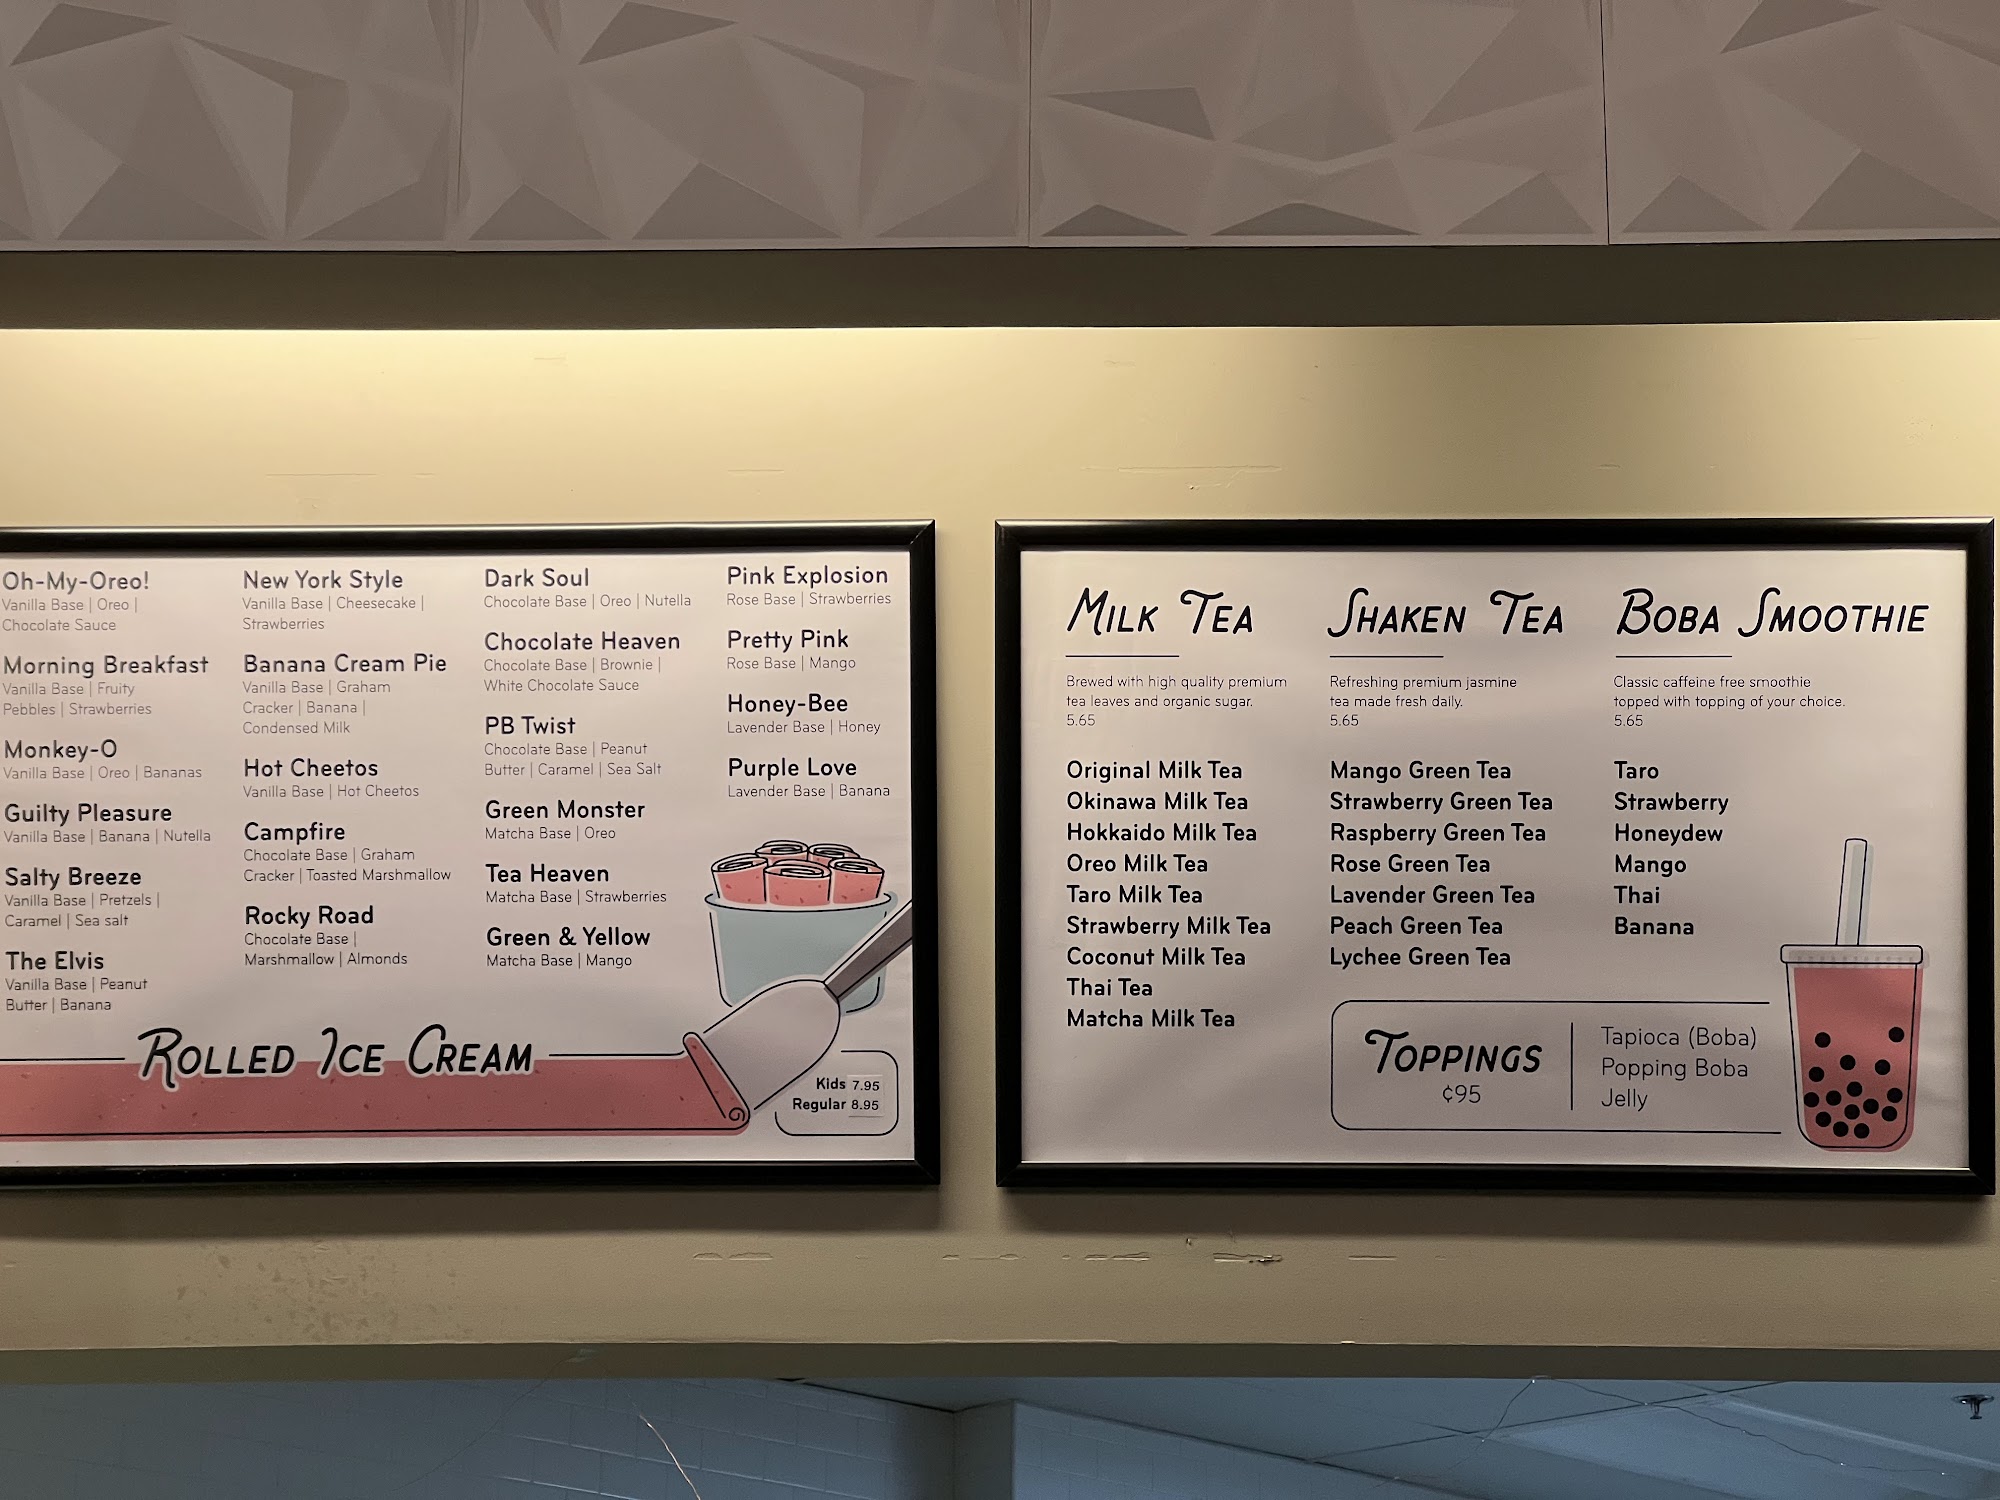 Oh-My-Oreo!
Vanilla Base | Oreo |
Chocolate Sauce
Morning Breakfast
Vanilla Base | Fruity
Pebbles | Strawberries
Monkey-O
Vanilla Base | Oreo | Bananas
Guilty Pleasure
Vanilla Base | Banana | Nutella
Salty Breeze
Vanilla Base | Pretzels |
Caramel | Sea salt
The Elvis
Vanilla Base | Peanut
Butter | Banana
New York Style
Vanilla Base | Cheesecake |
Strawberries
Banana Cream Pie
Vanilla Base | Graham
Cracker | Banana |
Condensed Milk
Hot Cheetos
Vanilla Base | Hot Cheetos
Campfire
Chocolate Base | Graham
Cracker | Toasted Marshmallow
Rocky Road
Chocolate Base |
Marshmallow | Almonds
Dark Soul
Chocolate Base | Oreo | Nutella
Chocolate Heaven
Chocolate Base | Brownie |
White Chocolate Sauce
PB Twist
Chocolate Base | Peanut
Butter | Caramel | Sea Salt
Green Monster
Matcha Base | Oreo
Tea Heaven
Matcha Base | Strawberries
Green & Yellow
Matcha Base | Mango
Pink Explosion
Rose Base | Strawberries
Pretty Pink
Rose Base | Mango
Honey-Bee
Lavender Base | Honey
Purple Love
Lavender Base | Banana
ROLLED ICE CREAM
Kids 7.95
Regular 8.95
MILK TEA
Brewed with high quality premium
tea leaves and organic sugar.
5.65
Original Milk Tea
Okinawa Milk Tea
Hokkaido Milk Tea
Oreo Milk Tea
Taro Milk Tea
Strawberry Milk Tea
Coconut Milk Tea
Thai Tea
Matcha Milk Tea
SHAKEN TEA
Refreshing premium jasmine
tea made fresh daily.
5.65
Mango Green Tea
Strawberry Green Tea
Raspberry Green Tea
Rose Green Tea
Lavender Green Tea
Peach Green Tea
Lychee Green Tea
BOBA SMOOTHIE
Classic caffeine free smoothie
topped with topping of your choice.
5.65
Taro
Strawberry
Honeydew
Mango
Thai
Banana
TOPPINGS
¢95
Tapioca (Boba)
Popping Boba
Jelly